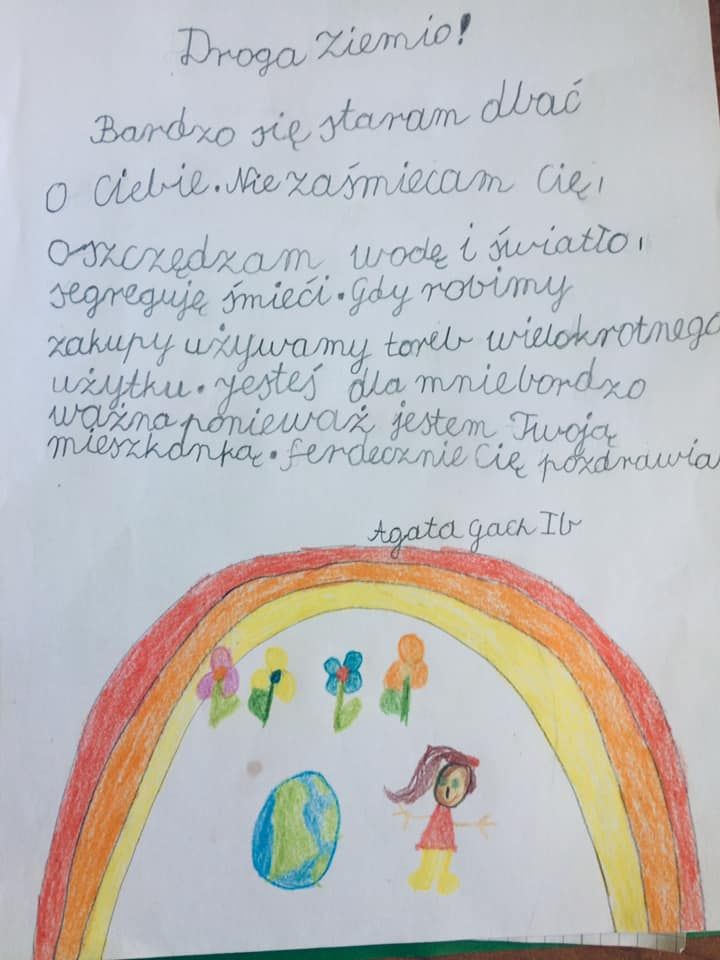 Droga Ziemio!
Bardzo się staram dbać
o Ciebie. Nie zaśmiecam Cię,
oszczędzam wodę i światło,
segreguję śmieci. Gdy robimy
zakupy używamy toreb wielokrotnego
użytku. Jesteś dla mnie bardzo
ważna ponieważ jestem Twoją
mieszkanką. Serdecznie Cię pozdrawia
Agata Gach Ib